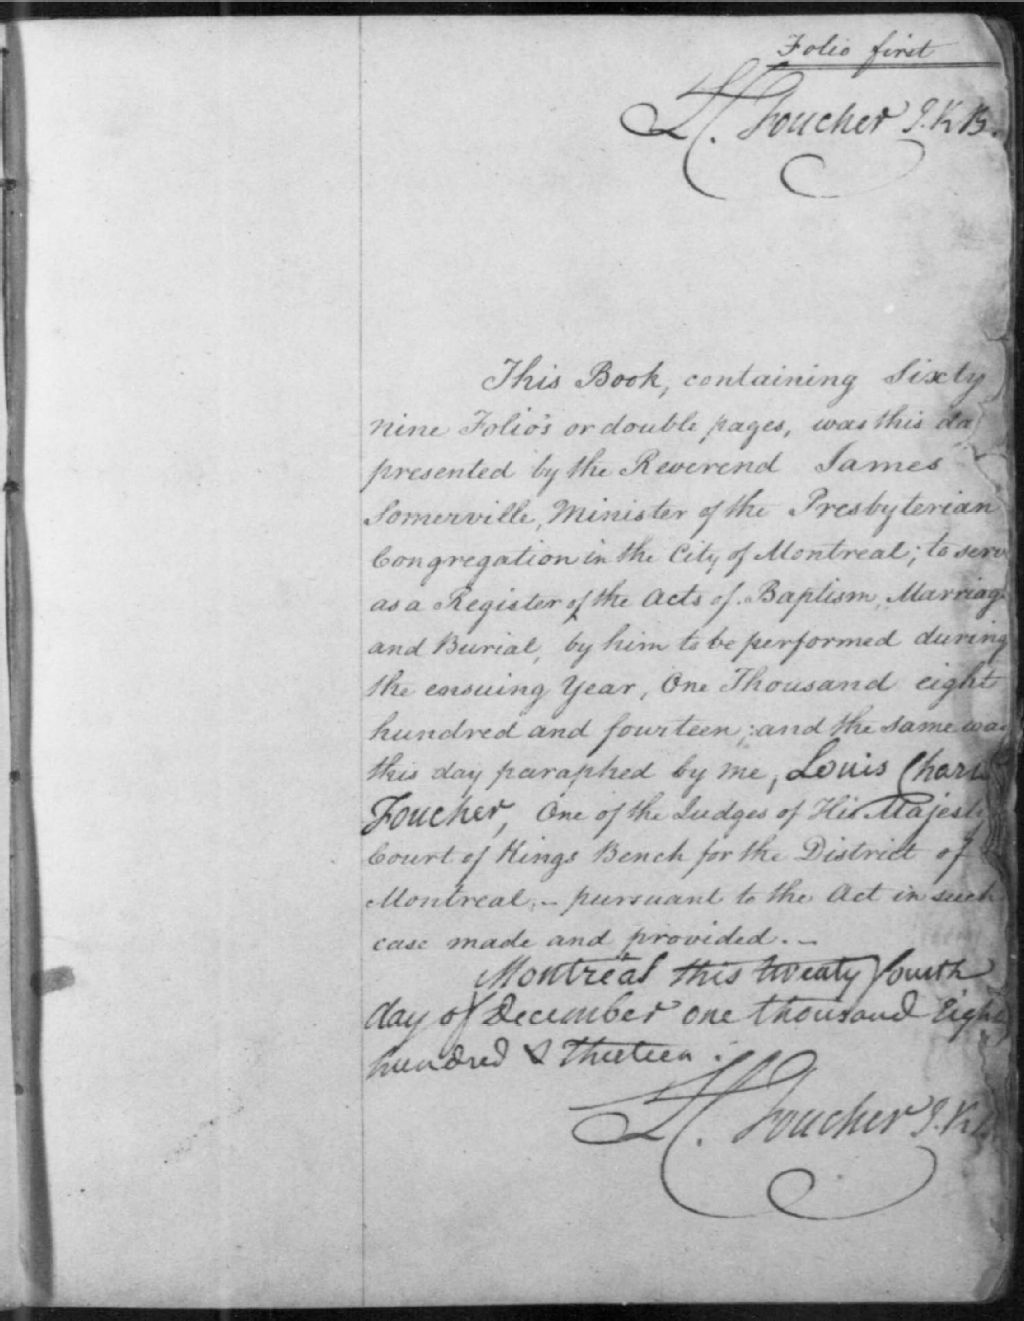 Folio first
LC. Foucher J.K.B.
This Book, containing Sixty
nine Folio's or double pages, was this da
presented by the Reverend James
Somerville, Minister of the Presbyterian
Congregation in the City of Montreal; to serv
as a Register of the Acts of Baptism, Marriag
and Burial, by him to be performed during
the ensuing Year, One Thousand eight
hundred and fourteen; and the same was
this day paraphed by me, Louis Charl
Foucher, One of the Judges of His Majest
Court of Kings Bench for the District of
Montreal, – pursuant to the Act in such
case made and provided. –
Montreal this twenty fourth
day of December one thousand Eight
hundred & Thirteen.
LC. Foucher J.K.B